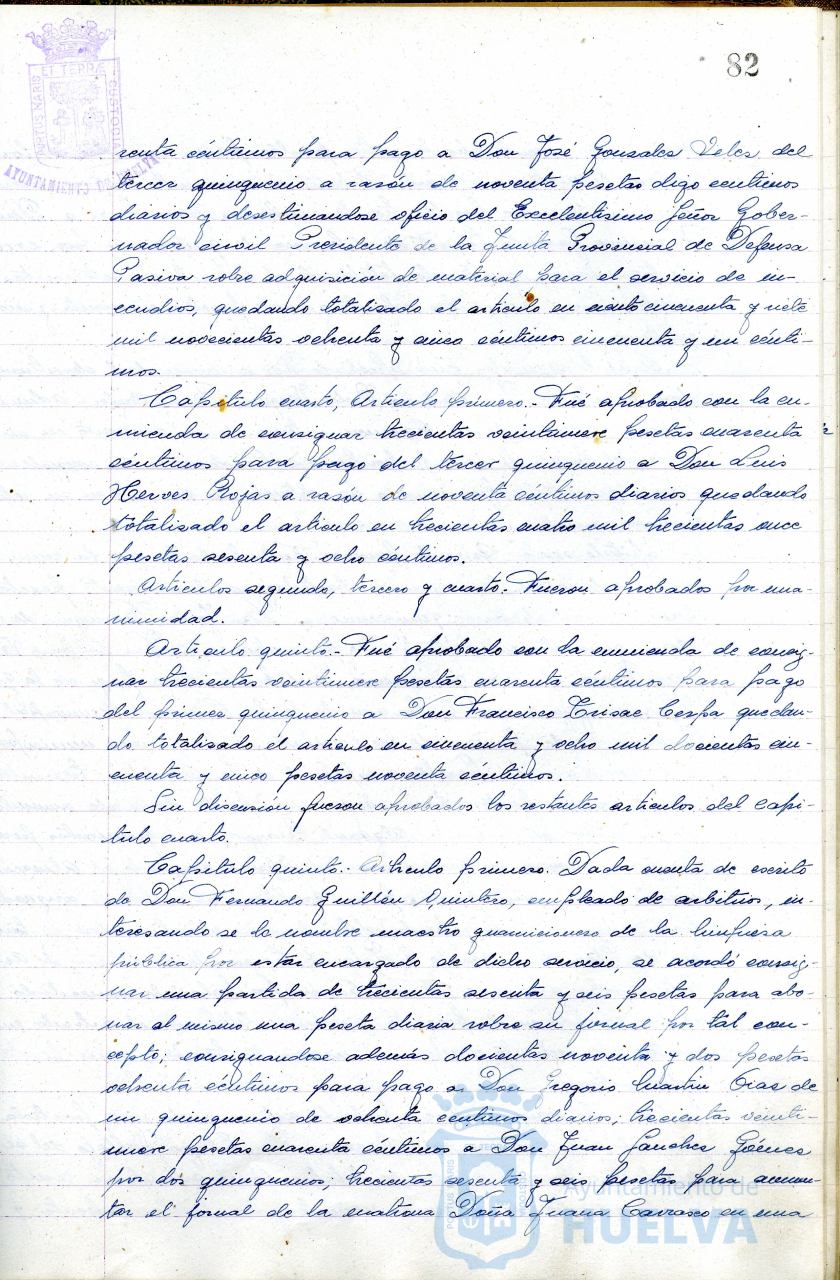 82
ET TERRÆ
PORTUS MARIS
CUSTODIA
AYUNTAMIENTO DE HUELVA
renta céntimos para pago a Don José Gonzales Veles del
tercer quinquenio a razón de noventa pesetas digo centimos
diarios y desestimandose oficio del Excelentisimo Señor Gober-
nador civil Presidente de la Junta Provincial de Defensa
Pasiva sobre adquisición de material para el servicio de in-
cendios, quedando totalisado el artículo en ciento cincuenta y siete
mil novecientas ochenta y cinco céntimos cincuenta y un cénti-
mos.
Capítulo cuarto, Artículo primero.- Fué aprobado con la en-
mienda de consignar trecientas veintinueve pesetas cuarenta
céntimos para pago del tercer quinquenio a Don Luis
Herves Rojas a rasón de noventa céntimos diarios quedando
totalisado el artículo en trecientas cuatro mil trecientas once
pesetas sesenta y ocho céntimos.
Artículos segundo, tercero y cuarto.- Fueron aprobados por una-
nimidad.
Artículo quinto.- Fué aprobado con la enmienda de consig-
nar trecientas veintinueve pesetas cuarenta céntimos para pago
del primer quinquenio a Don Francisco Trisac Cerpa quedan-
do totalisado el artículo en cincuenta y ocho mil docientas cin-
cuenta y cinco pesetas noventa céntimos.
Sin discusión fueron aprobados los restantes artículos del capí-
tulo cuarto.
Capítulo quinto.- Artículo primero. Dada cuenta de escrito
de Don Fernando Guillén Quintero, empleado de arbitrios, in-
teresando se le nombre maestro guarnicionero de la limpiesa
pública por estar encargado de dicho servicio, se acordó consig-
nar una partida de trecientas sesenta y seis pesetas para abo-
nar al mismo una peseta diaria sobre su jornal por tal con-
cepto; consignandose además docientas noventa y dos pesetas
ochenta céntimos para pago a Don Gregorio Martin Dias de
un quinquenio de ochenta centimos diarios; trecientas veinti-
nueve pesetas cuarenta céntimos a Don Juan Sanches Gómes
por dos quinquenios; trecientas sesenta y seis pesetas para aumen-
tar el jornal de la matrona Doña Juana Carrasco en una
Ayuntamiento de
HUELVA